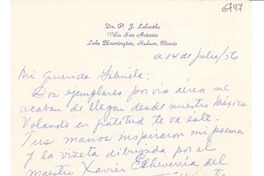 6747
Dr. P. J. Labarthe
Villa San Antonio
Lake Bloomington, Hudson, Illinois
a 14 de julio/56
Mi Querida Gabriela:
Dos ejemplares por vía aérea me
acaban de llegar desde nuestro México.
Volando en gratitud te va este.
Tus manos inspiraron mi poema
y la viñeta dibujada por el
maestro Xavier Echeverría del